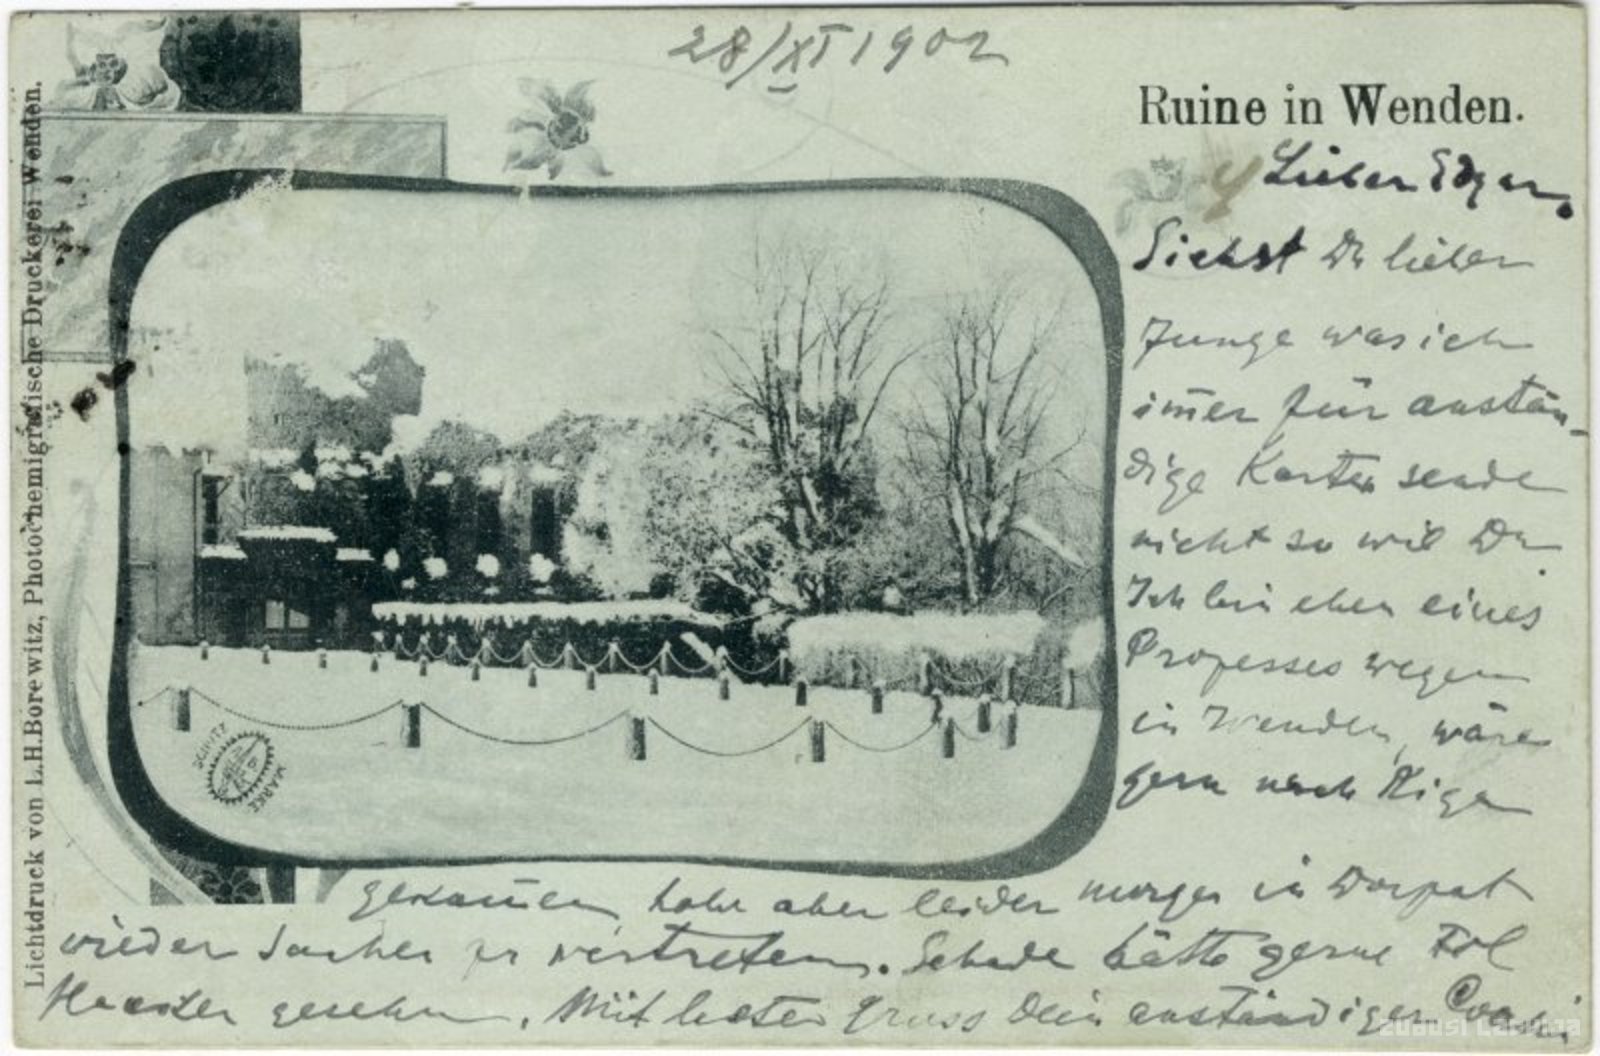 28/XI 1902
Ruine in Wenden.
Lieber Edgar,
Siehst Du lieber
Junge was ich
im̄er für anstän-
dige Karten sende
nicht so wie Du.
Ich bin eben eines
Prozesses wegen
in Wenden, wäre
gern nach Riga
gekom̄en habe aber leider morgen in Dorpat
wieder Sachen zu vertreten. Schade hätte gerne Frl
gesehen. Mit bestem Gruss Dein anständiger
Lichtdruck von L.H.Borewitz, Photochemigrafische Druckerei Wenden.
SCHUTZ
MARKE
ZUDUSI LATVIJA